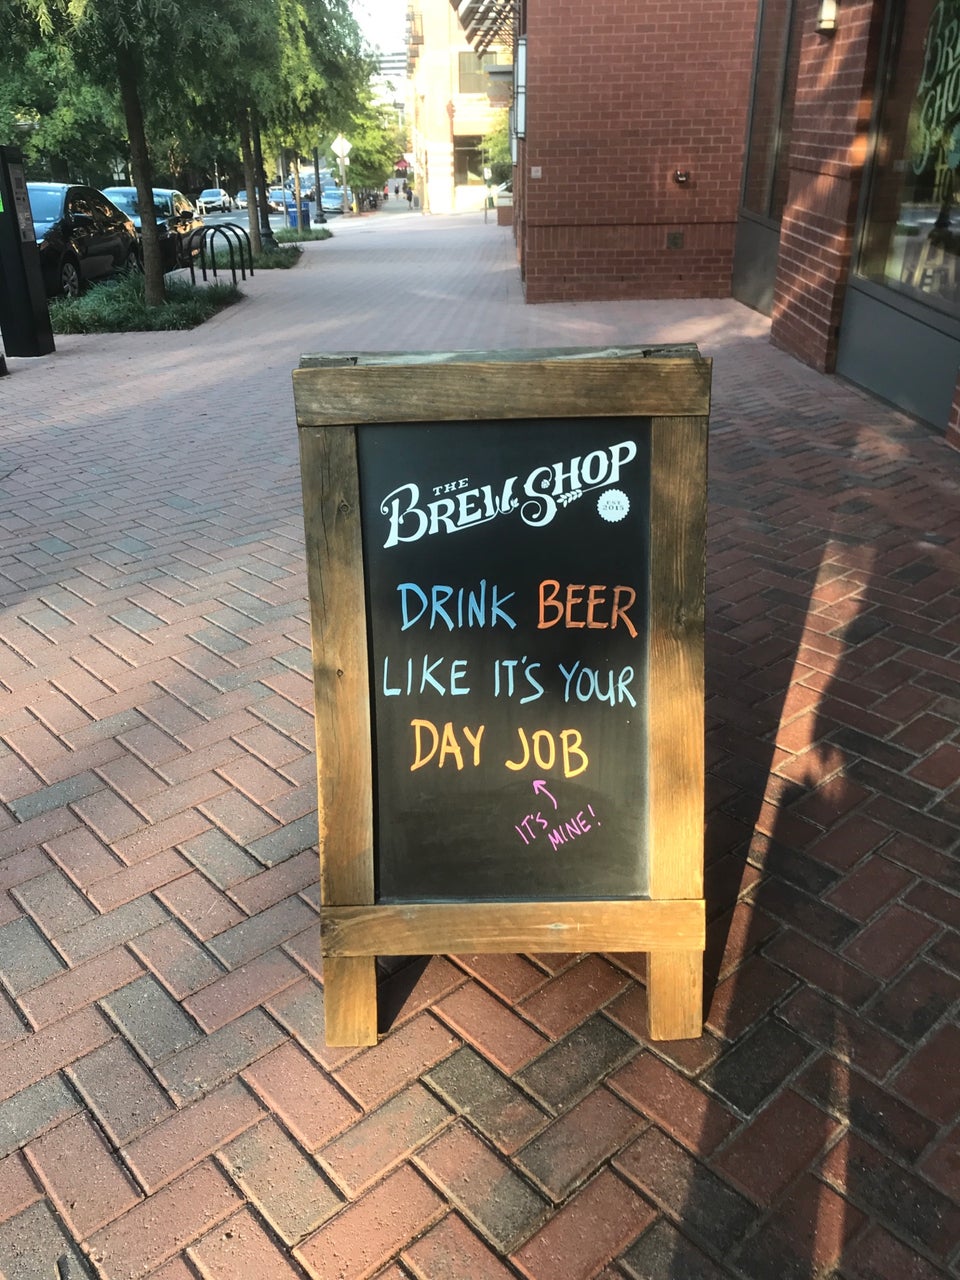 THE
BREW SHOP
EST.
2015
DRINK BEER
LIKE IT'S YOUR
DAY JOB
IT'S
MINE!